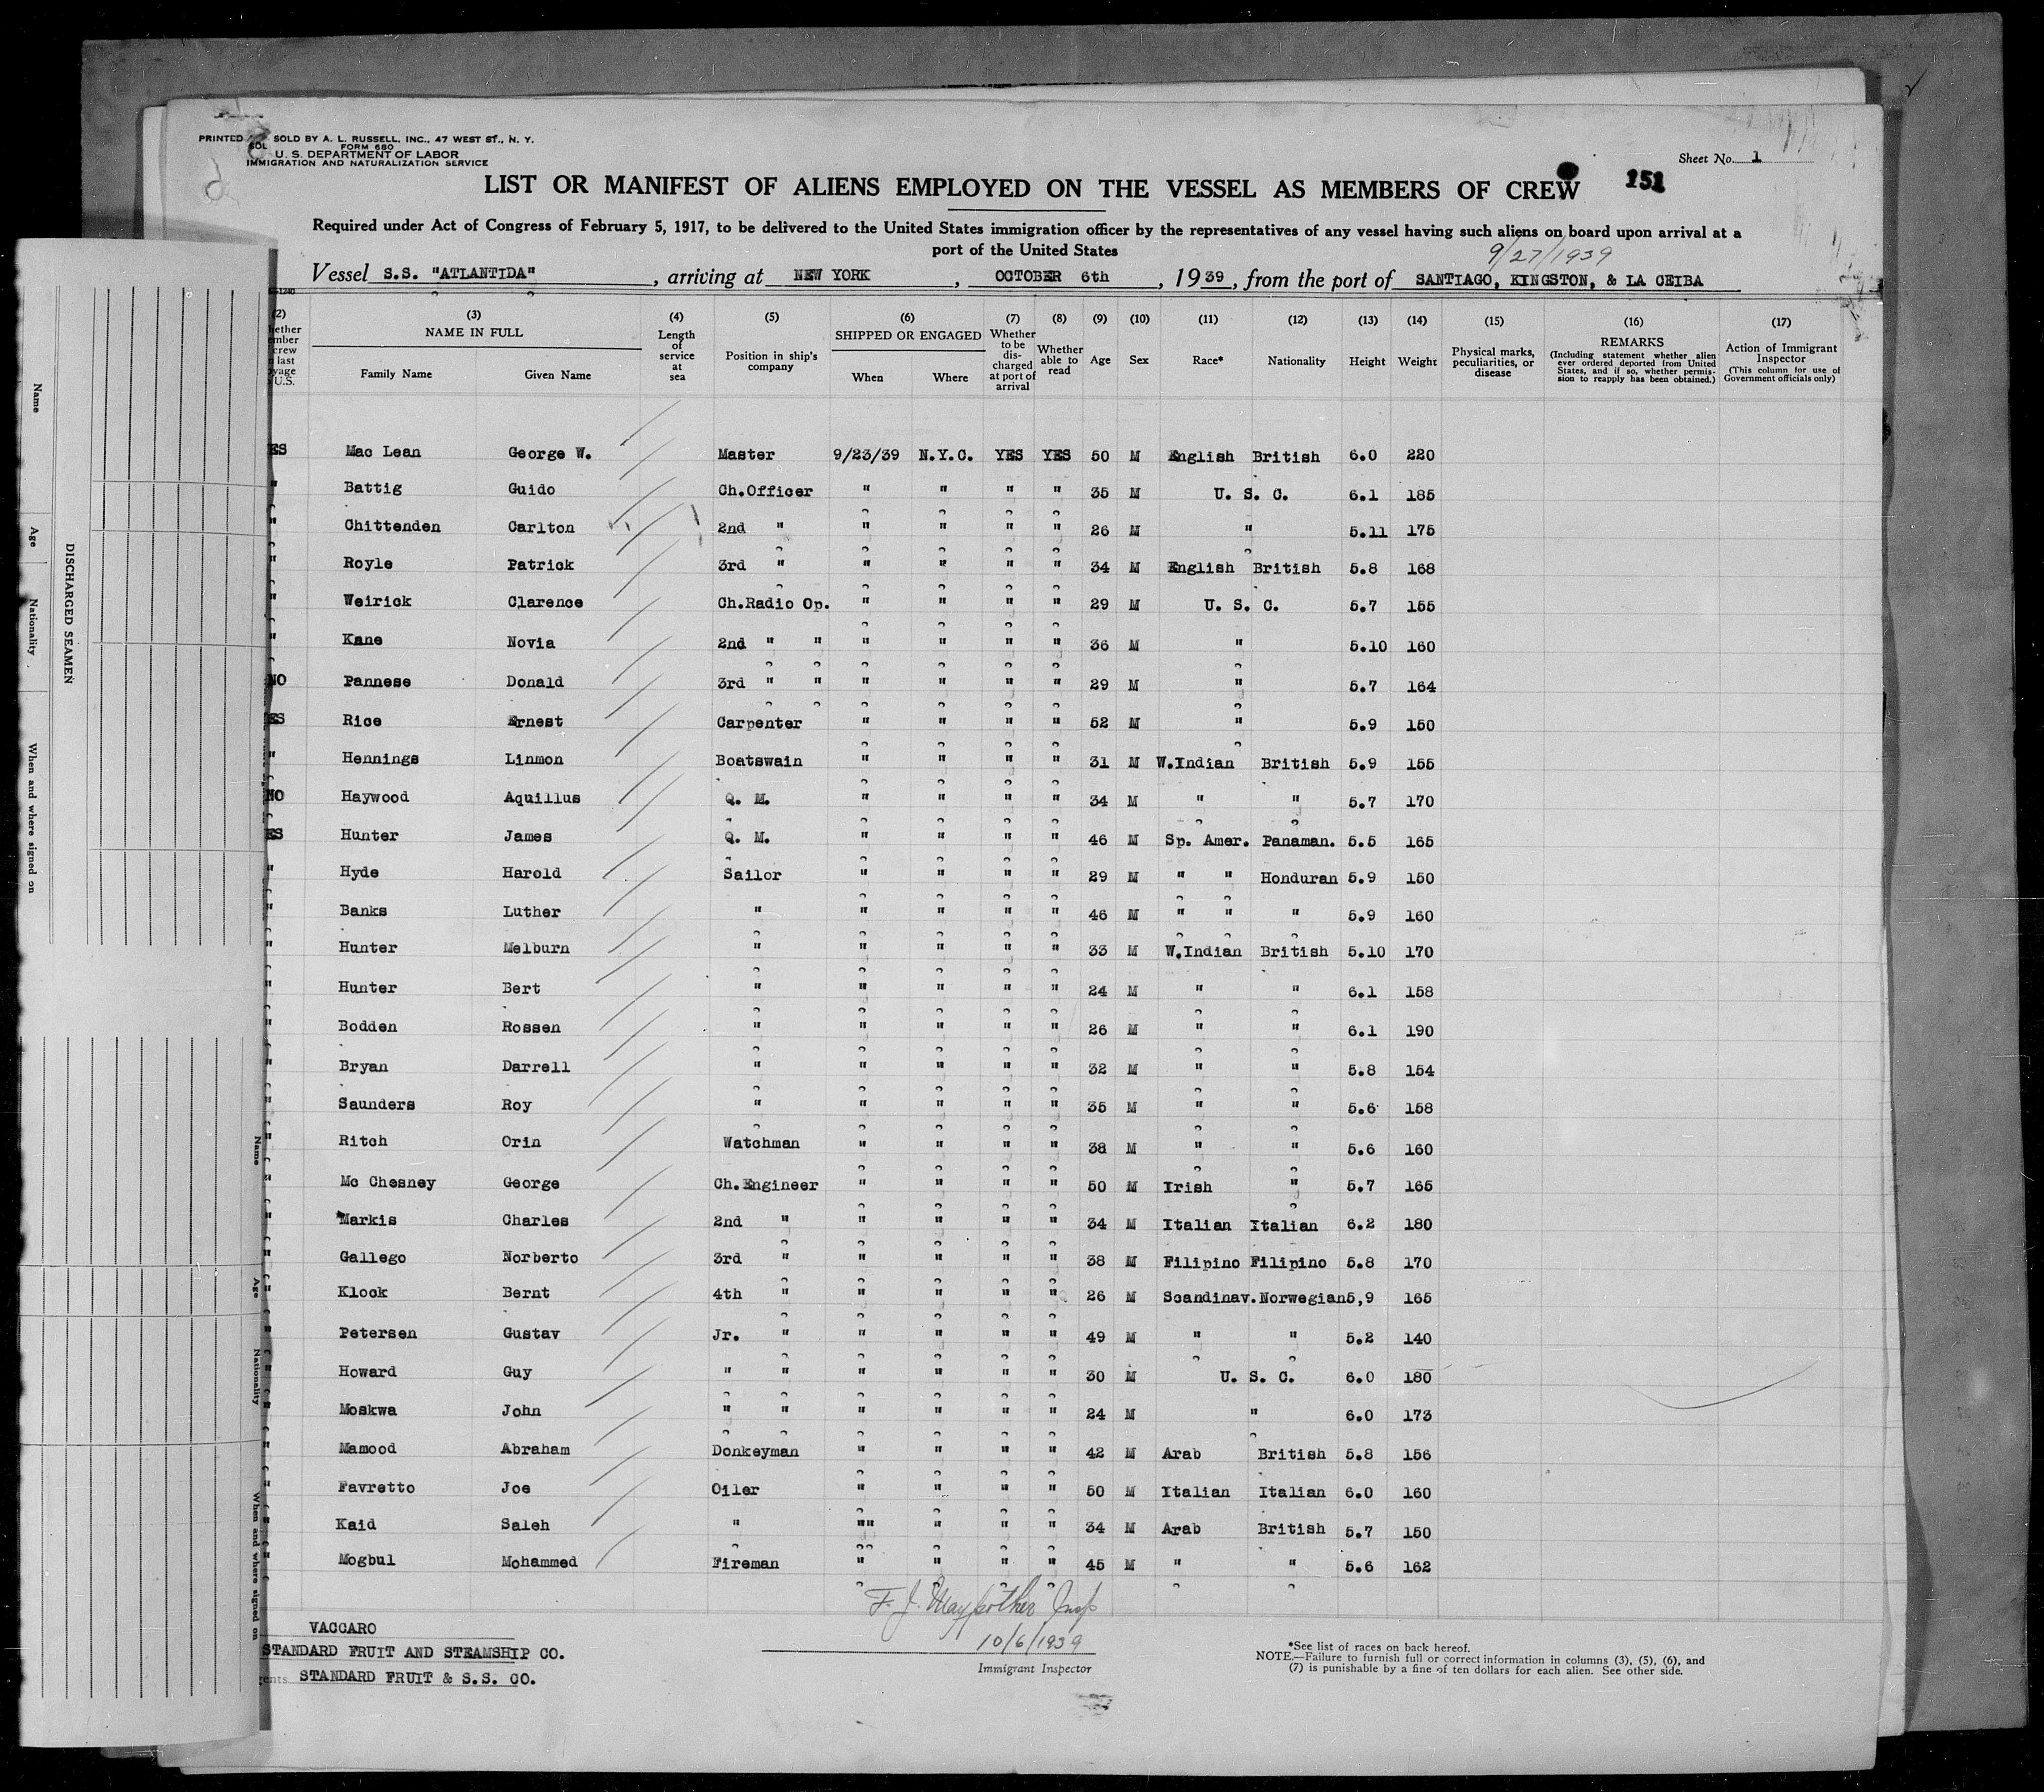 PRINTED SOLD BY A. L. RUSSELL, INC., 47 WEST ST., N. Y.
FORM 680
U. S. DEPARTMENT OF LABOR
IMMIGRATION AND NATURALIZATION SERVICE
Sheet No. 1
LIST OR MANIFEST OF ALIENS EMPLOYED ON THE VESSEL AS MEMBERS OF CREW 151
Required under Act of Congress of February 5, 1917, to be delivered to the United States immigration officer by the representatives of any vessel having such aliens on board upon arrival at a
port of the United States
9/27/1939
Vessel S.S. "ATLANTIDA", arriving at NEW YORK, OCTOBER 6th, 1939, from the port of SANTIAGO, KINGSTON, & LA CEIBA
(2) (3) NAME IN FULL Family Name Given Name (4) Length of service at sea (5) Position in ship's company (6) SHIPPED OR ENGAGED When Where (7) Whether to be discharged at port of arrival (8) Whether able to read (9) Age (10) Sex (11) Race* (12) Nationality (13) Height (14) Weight (15) Physical marks, peculiarities, or disease (16) REMARKS (Including statement whether alien ever ordered deported from United States, and if so, whether permission to reapply has been obtained.) (17) Action of Immigrant Inspector (This column for use of Government officials only)
ES Mac Lean George W. Master 9/23/39 N.Y.C. YES YES 50 M English British 6.0 220
" Battig Guido Ch.Officer " " " " 35 M U. S. C. 6.1 185
" Chittenden Carlton 2nd " " " " " 26 M " 5.11 175
" Royle Patrick 3rd " " " " " 34 M English British 5.8 168
" Weirick Clarence Ch.Radio Op. " " " " 29 M U. S. C. 5.7 155
" Kane Novia 2nd " " " " " " 36 M " 5.10 160
NO Pannese Donald 3rd " " " " " " 29 M " 5.7 164
ES Rice Ernest Carpenter " " " " 52 M " 5.9 150
" Hennings Linmon Boatswain " " " " 31 M W.Indian British 5.9 155
NO Haywood Aquillus Q. M. " " " " 34 M " " 5.7 170
ES Hunter James Q. M. " " " " 46 M Sp. Amer. Panaman. 5.5 165
" Hyde Harold Sailor " " " " 29 M " " Honduran 5.9 150
" Banks Luther " " " " " 46 M " " " 5.9 160
" Hunter Melburn " " " " " 33 M W.Indian British 5.10 170
" Hunter Bert " " " " " 24 M " " 6.1 158
" Bodden Rossen " " " " " 26 M " " 6.1 190
" Bryan Darrell " " " " " 32 M " " 5.8 154
" Saunders Roy " " " " " 35 M " " 5.6 158
" Ritch Orin Watchman " " " " 38 M " " 5.6 160
" Mc Chesney George Ch.Engineer " " " " 50 M Irish " 5.7 165
" Markis Charles 2nd " " " " " 34 M Italian Italian 6.2 180
" Gallego Norberto 3rd " " " " " 38 M Filipino Filipino 5.8 170
" Klock Bernt 4th " " " " " 26 M Scandinav. Norwegian 5,9 165
" Petersen Gustav Jr. " " " " " 49 M " " 5.2 140
" Howard Guy " " " " " " 30 M U. S. C. 6.0 180
" Moskwa John " " " " " " 24 M " 6.0 173
" Mamood Abraham Donkeyman " " " " 42 M Arab British 5.8 156
" Favretto Joe Oiler " " " " 50 M Italian Italian 6.0 160
" Kaid Saleh " "" " " " 34 M Arab British 5.7 150
" Mogbul Mohammed Fireman " " " " 45 M " " 5.6 162
F. J. Maypother Insp
10/6/1939
Immigrant Inspector
VACCARO
STANDARD FRUIT AND STEAMSHIP CO.
STANDARD FRUIT & S.S. CO.
*See list of races on back hereof.
NOTE.—Failure to furnish full or correct information in columns (3), (5), (6), and
(7) is punishable by a fine of ten dollars for each alien. See other side.
DISCHARGED SEAMEN
Name Age Nationality When and where signed on
Name Age Nationality When and where signed on